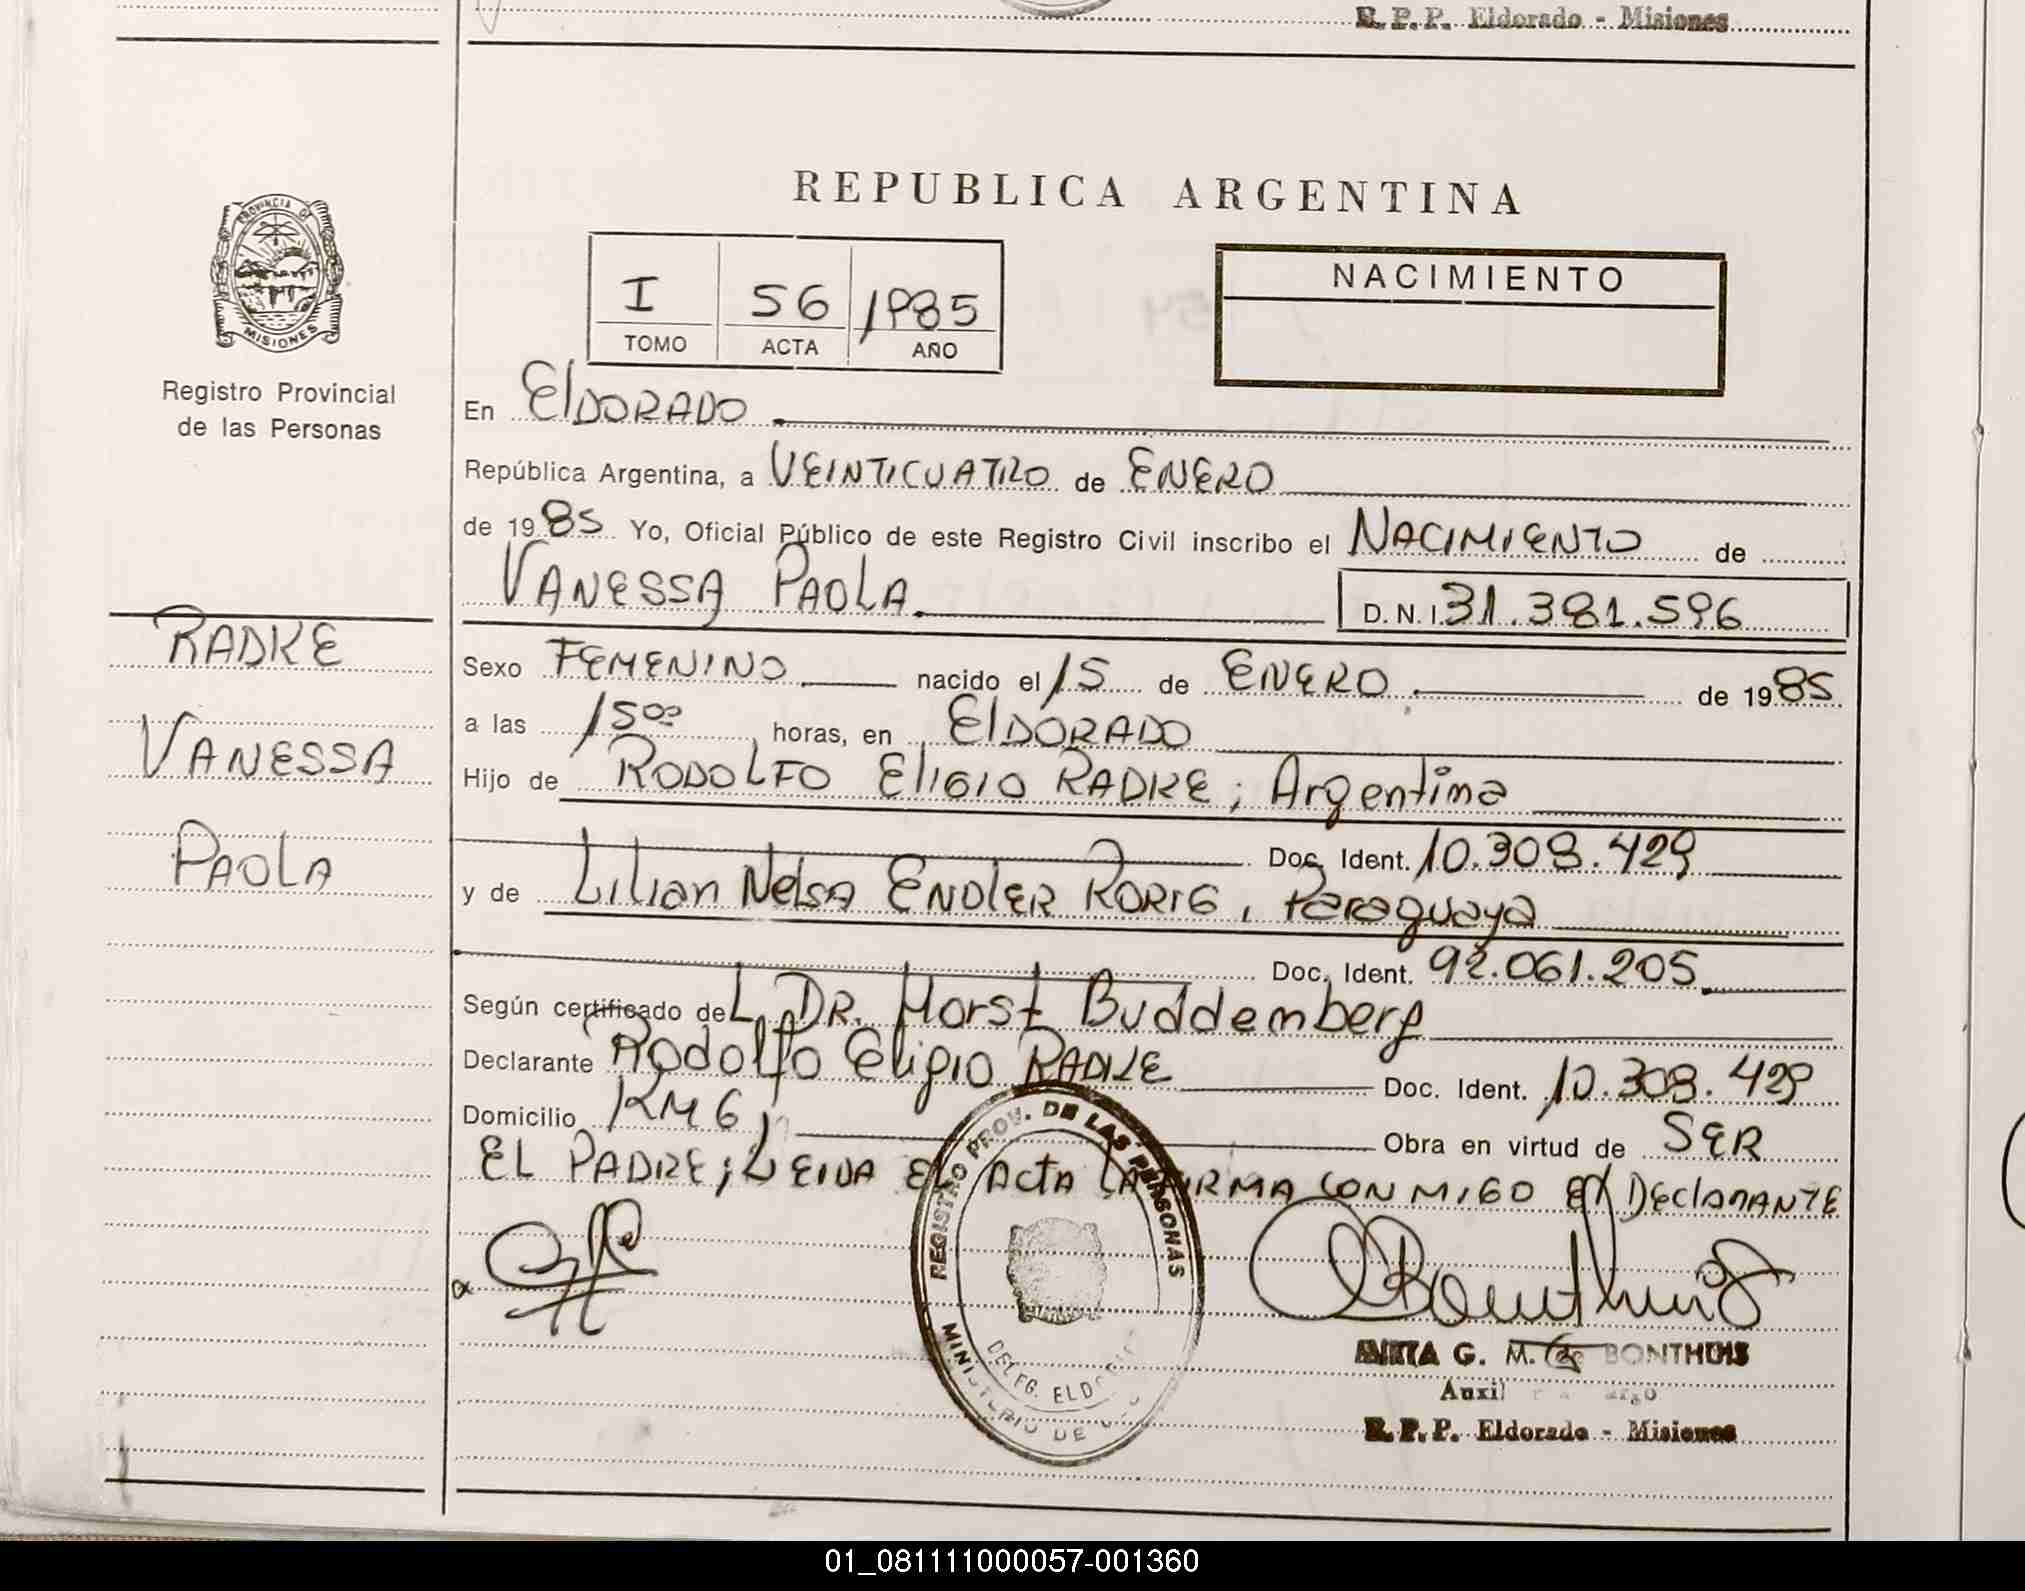 R. P. P. Eldorado - Misiones
REPUBLICA ARGENTINA
PROVINCIA D
MISIONES
Registro Provincial
de las Personas
I 56 1985
TOMO ACTA AÑO
NACIMIENTO
En ElDORADO
República Argentina, a VEINTICUATRO de ENERO
de 1985 Yo, Oficial Público de este Registro Civil inscribo el NACIMIENTO de
VANESSA PAOLA D. N. I. 31.381.596
RADKE
VANESSA
PAOLA
Sexo FEMENINO nacido el 15 de ENERO de 1985
a las 15°° horas, en ElDORADO
Hijo de RODOLFO EliGIO RADKE; Argentina
Doc. Ident. 10.308.429
y de Lilian Nelsa ENDLER RORIG, Paraguaya
Doc. Ident. 92.061.205
Según certificado de L DR. Horst Buddemberg
Declarante Rodolfo Eligio RADKE Doc. Ident. 10.308.429
Domicilio KM 6, Obra en virtud de SER
EL PADRE; LEIDA EL ACTA LA FIRMA CONMIGO El DEClARANTE
REGISTRO PROV. DE LAS PERSONAS
MINISTERIO DE
DELEG. ELDORADO
ANITA G. M. de BONTHUIS
R. P. P. Eldorado - Misiones
01_081111000057-001360